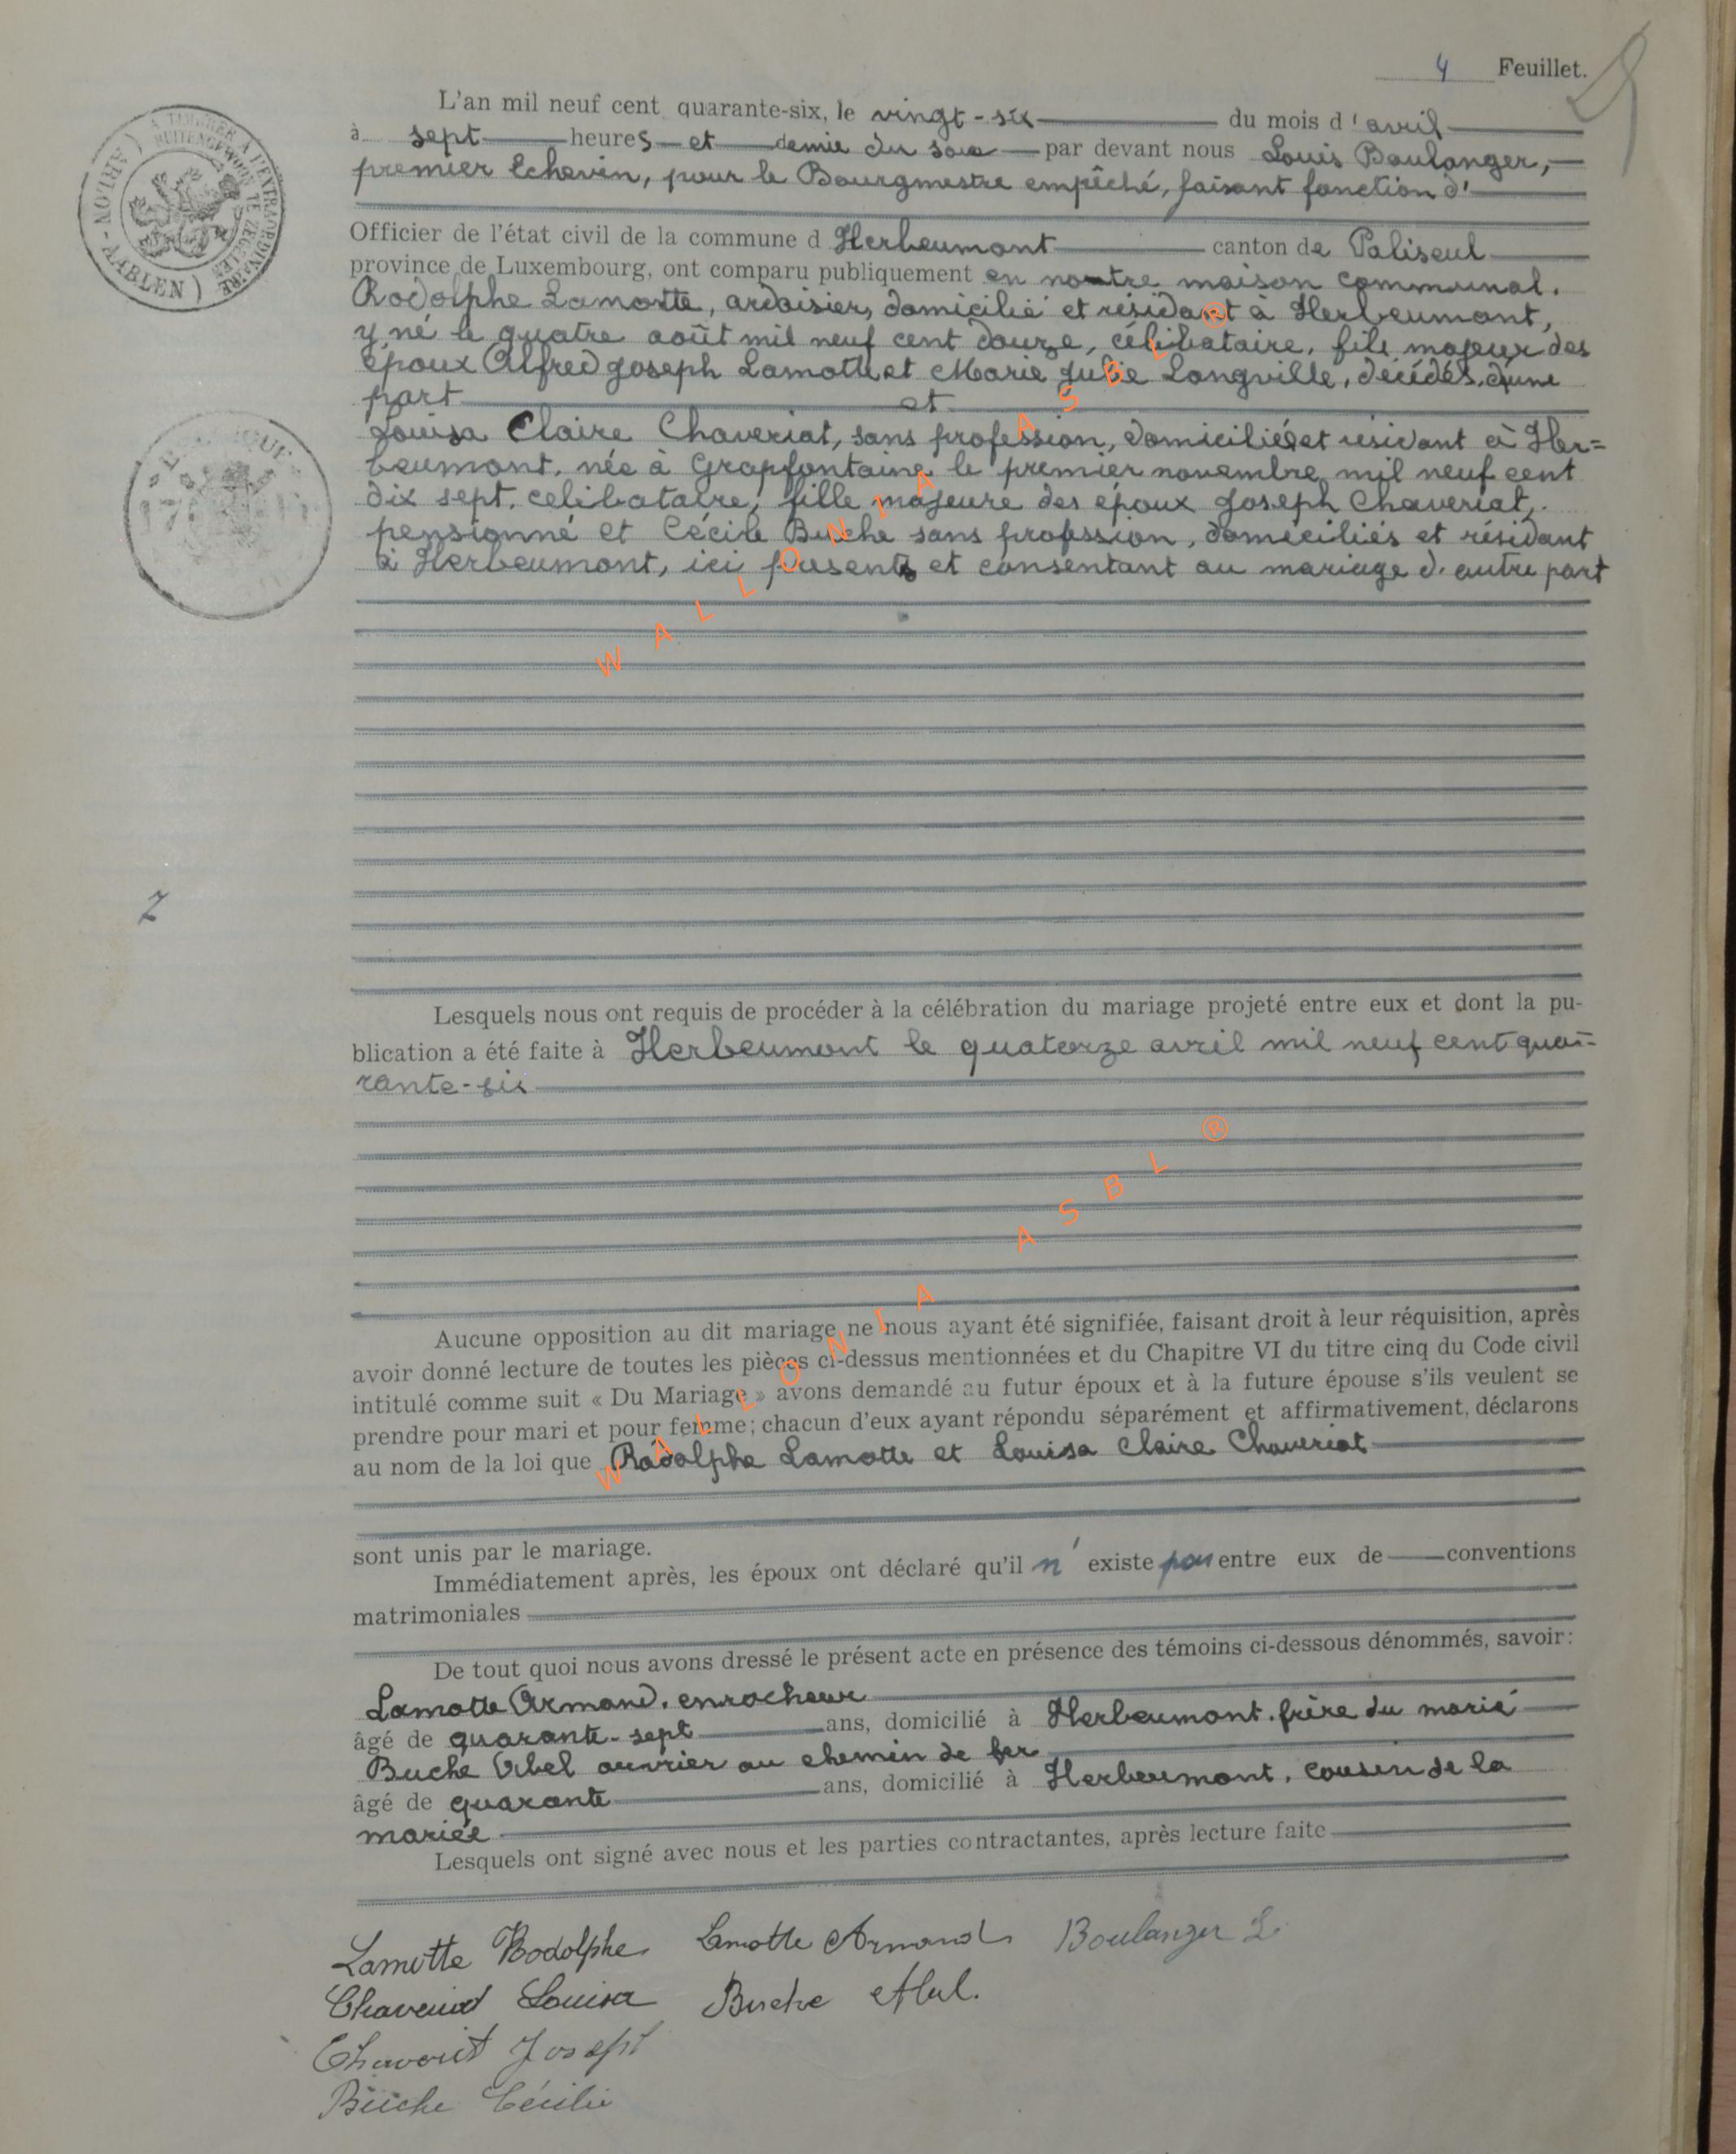 4 Feuillet.
L'an mil neuf cent quarante-six, le vingt-six du mois d'avril
à sept heures et demie du soir par devant nous Louis Boulanger,
premier Echevin, pour le Bourgmestre empêché, faisant fonction d'
Officier de l'état civil de la commune d Herbeumont canton de Paliseul
province de Luxembourg, ont comparu publiquement en notre maison communal.
Rodolphe Lamotte, ardoisier, domicilié et résidant à Herbeumont,
y né le quatre août mil neuf cent douze, célibataire, fils majeur des
époux Alfred Joseph Lamotte et Marie Julie Longville, décédés, d'une
part et
Louisa Claire Chaveriat, sans profession, domiciliée et résidant à Her=
beumont, née à Grapfontaine le premier novembre mil neuf cent
dix sept, celibataire, fille majeure des époux Joseph Chaveriat,
pensionné et Cécile Buche sans profession, domiciliés et résidant
à Herbeumont, ici présents et consentant au mariage d'autre part
Lesquels nous ont requis de procéder à la célébration du mariage projeté entre eux et dont la pu-
blication a été faite à Herbeumont le quatorze avril mil neuf cent qua=
rante-six
Aucune opposition au dit mariage ne nous ayant été signifiée, faisant droit à leur réquisition, après
avoir donné lecture de toutes les pièces ci-dessus mentionnées et du Chapitre VI du titre cinq du Code civil
intitulé comme suit « Du Mariage » avons demandé au futur époux et à la future épouse s'ils veulent se
prendre pour mari et pour femme; chacun d'eux ayant répondu séparément et affirmativement, déclarons
au nom de la loi que Rodolphe Lamotte et Louisa Claire Chaveriat
sont unis par le mariage.
Immédiatement après, les époux ont déclaré qu'il n' existe pas entre eux de conventions
matrimoniales
De tout quoi nous avons dressé le présent acte en présence des témoins ci-dessous dénommés, savoir:
Lamotte Armand, enrocheur
âgé de quarante-sept ans, domicilié à Herbeumont, frère du marié
Buche Abel ouvrier au chemin de fer
âgé de quarante ans, domicilié à Herbeumont, cousin de la
mariée
Lesquels ont signé avec nous et les parties contractantes, après lecture faite
Lamotte Rodolphe Lamotte Armand Boulanger L.
Chaveriat Louisa Buche Abel.
Chaveriat Joseph
Buche Cécile
A TIMBRER A L'EXTRAORDINAIRE
BUITENGEWOON TE ZEGELEN
(ARLON - AARLEN)
7
WALLONIA ASBL ®
WALLONIA ASBL ®